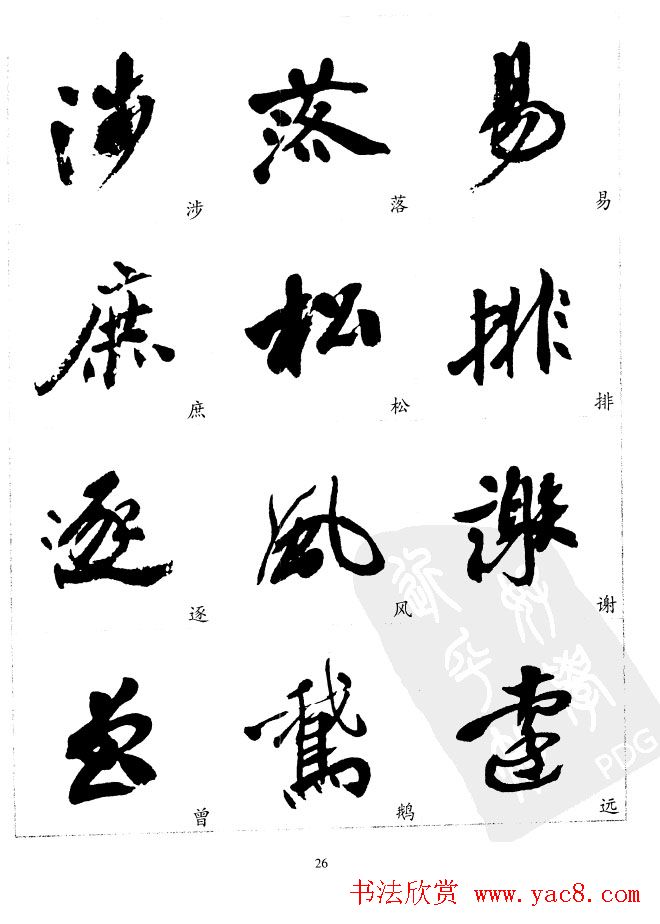 易 落 涉
易 落 涉
排 松 庶
排 松 庶
謝 風 逐
谢 风 逐
遠 鵝 曾
远 鹅 曾
PDG
26
书法欣赏 www.yac8.com